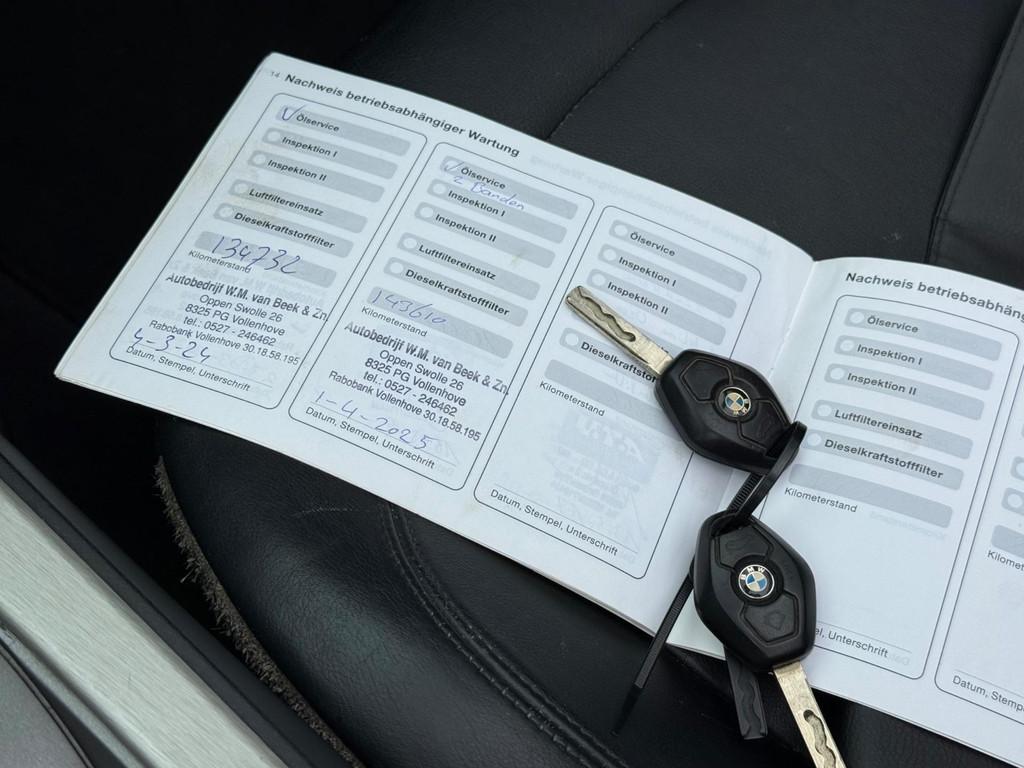 14 Nachweis betriebsabhängiger Wartung
Ölservice
Inspektion I
Inspektion II
Luftfiltereinsatz
Dieselkraftstofffilter
134732
Kilometerstand
Autobedrijf W.M. van Beek & Zn
Oppen Swolle 26
8325 PG Vollenhove
tel.: 0527 - 246462
Rabobank Vollenhove 30.18.58.195
4-3-24
Datum, Stempel, Unterschrift
Ölservice
2 Banden
Inspektion I
Inspektion II
Luftfiltereinsatz
Dieselkraftstofffilter
143610
Kilometerstand
Autobedrijf W.M. van Beek & Zn.
Oppen Swolle 26
8325 PG Vollenhove
tel.: 0527 - 246462
Rabobank Vollenhove 30.18.58.195
1-4-2025
Datum, Stempel, Unterschrift
Ölservice
Inspektion I
Inspektion II
Dieselkraftstofffi
Kilometerstand
Datum, Stempel, Unterschrift
Nachweis betriebsabhäng
Ölservice
Inspektion I
Inspektion II
Luftfiltereinsatz
Dieselkraftstofffilter
Kilometerstand
el, Unterschrift
Kilomete
Datum, Stem
BMW
BMW